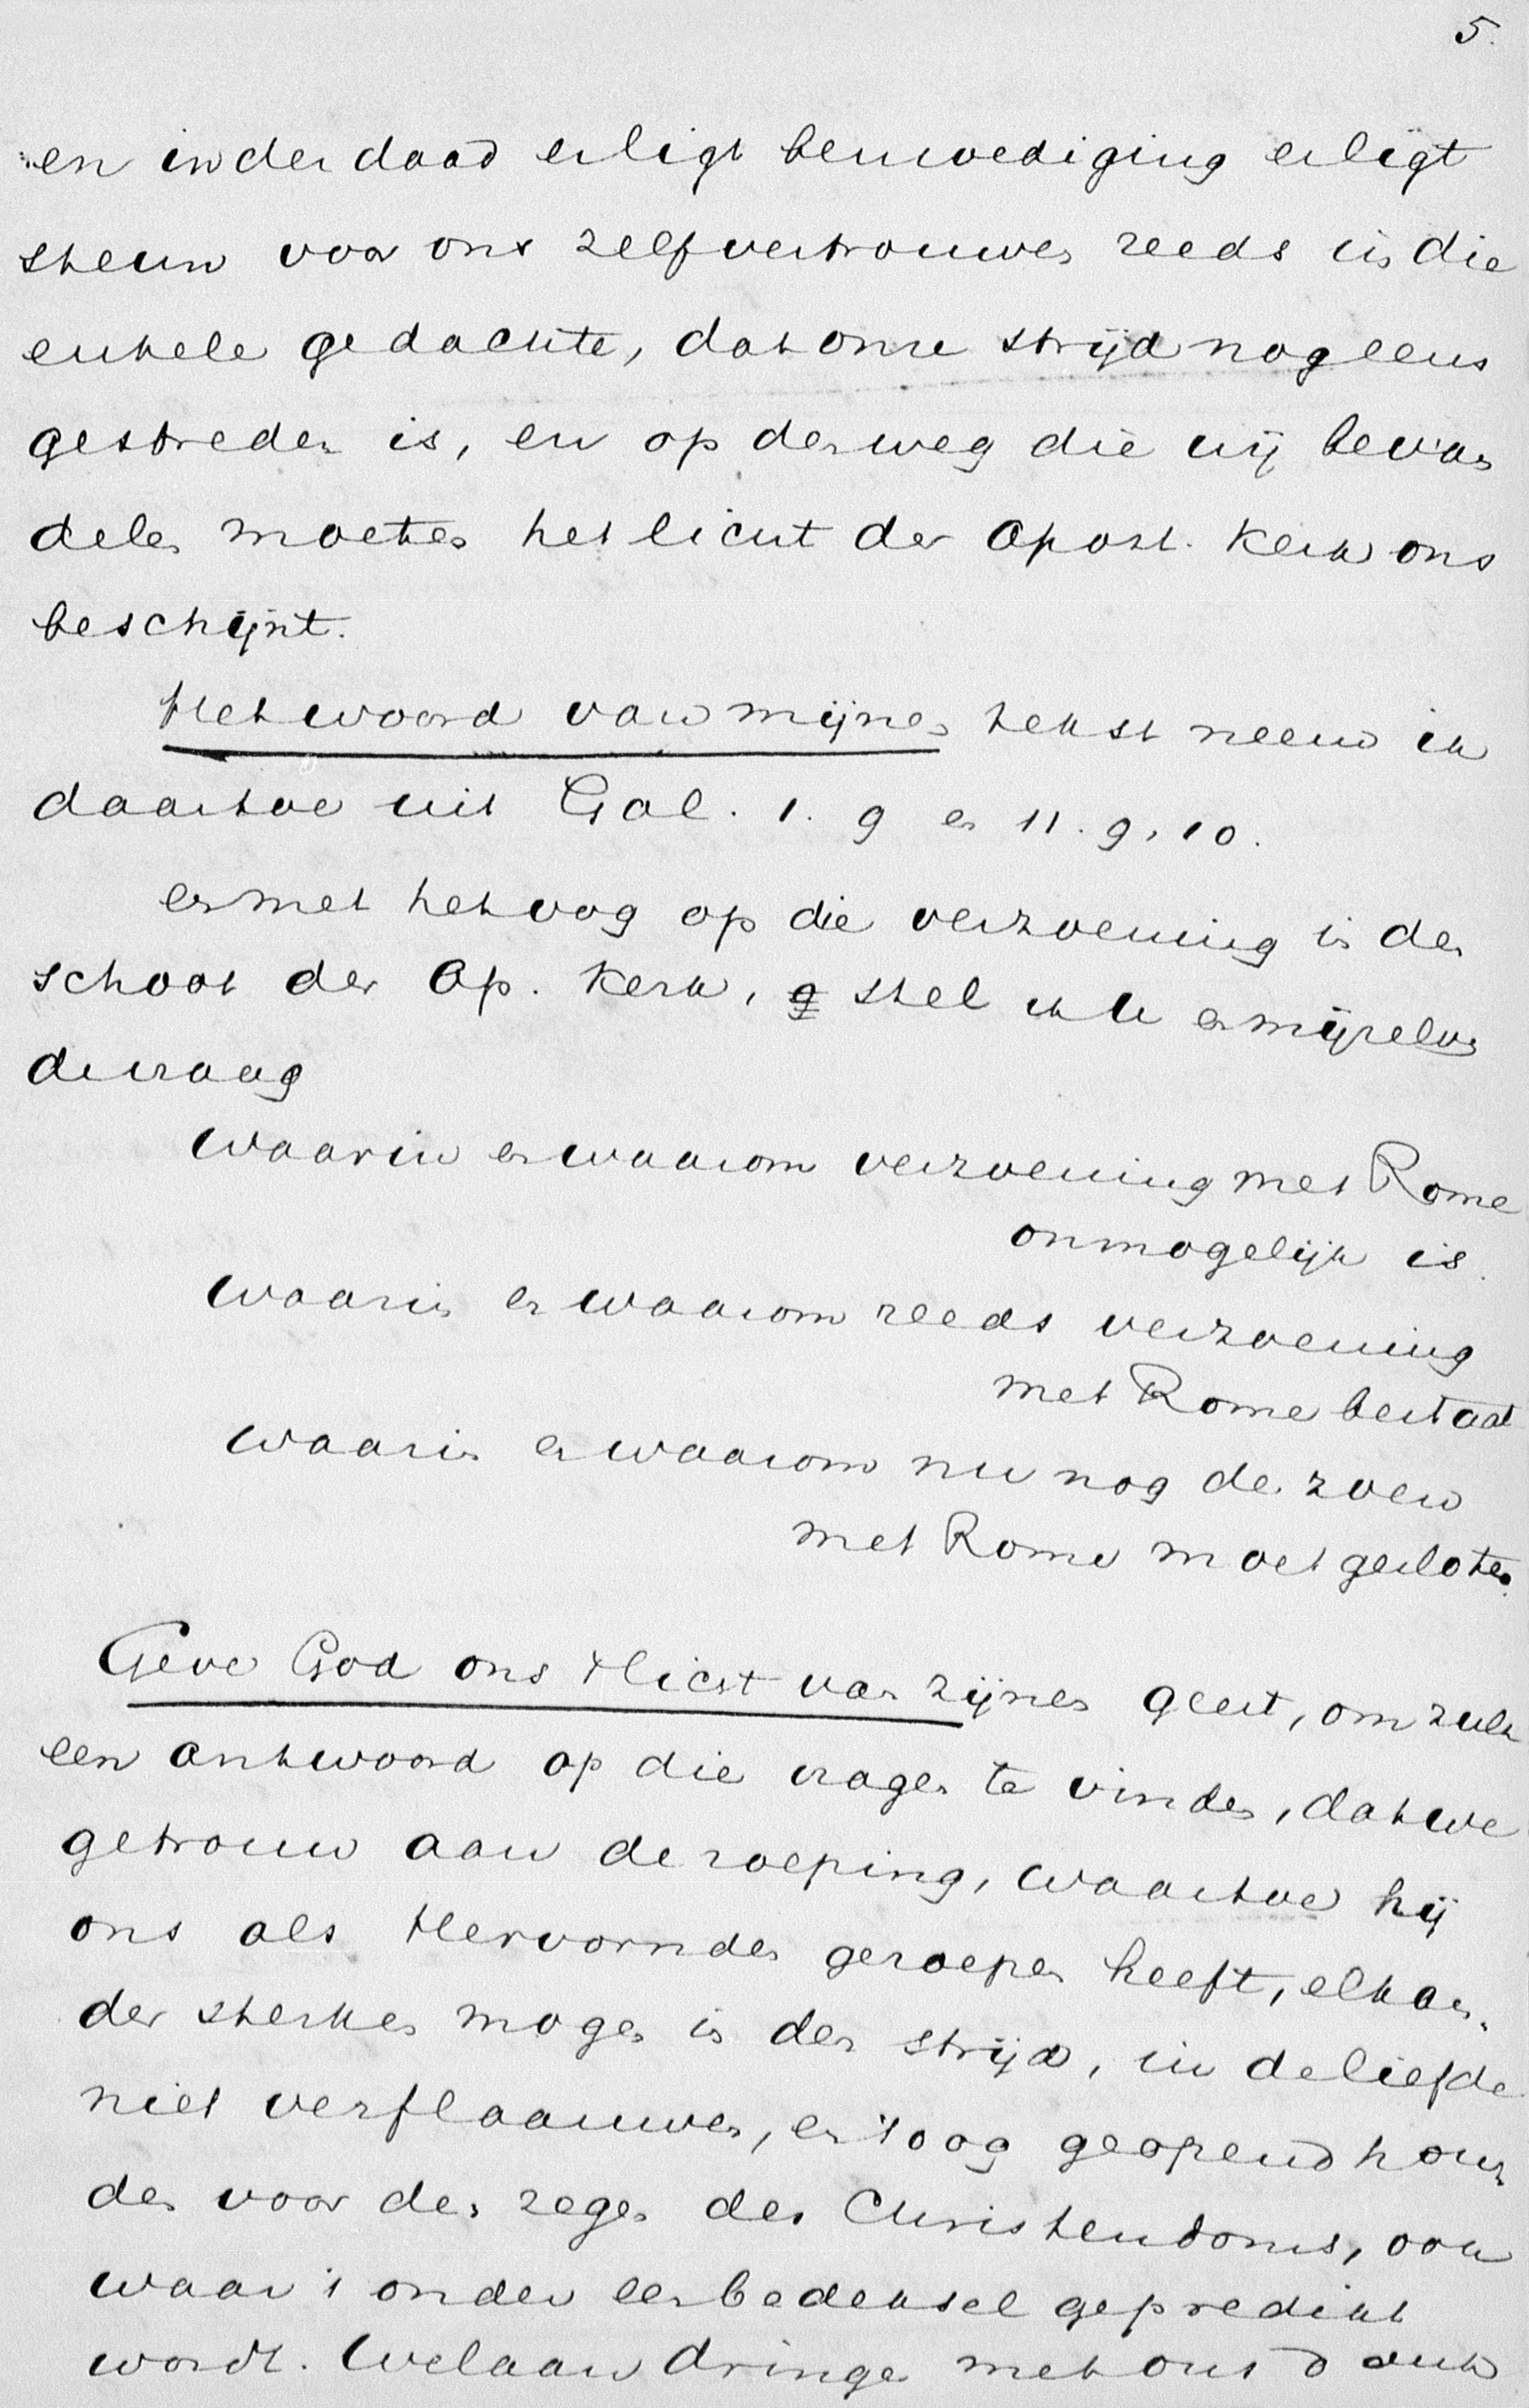 5.
en inderdaad er ligt bemoediging er ligt
steun voor ons zelfvertrouwen reeds in die
enkele gedachte, dat onze strijd nog eens
gestreden is, en op den weg die wij bewan
delen moeten het licht der Apost. Kerk ons
beschijnt.
Het woord van mijnen tekst neem ik
daartoe uit Gal. 1. 9 en 11. 9, 10.
en met het oog op die verzoening in den
schoot der Ap. Kerk, stel ik U en mijzelven
de vraag
Waarin en waarom verzoening met Rome
onmogelijk is.
Waarin en waarom reeds verzoening
met Rome bestaat
Waarin en waarom nu nog de zoen
met Rome moet gesloten.
Geve God ons 't licht van zijnen geest, om zulk
een antwoord op die vragen te vinden, dat we
getrouw aan de roeping, waartoe hij
ons als Hervormden geroepen heeft, elkan
der sterken mogen in den strijd, in de liefde
niet verflaauwen, en 't oog geopend hou
den voor den zegen des Christendoms, ook
waar 't onder een bedeksel gepredikt
wordt. Welaan dringe met ons